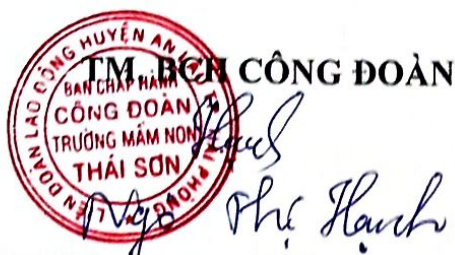 TM. BCH CÔNG ĐOÀN
LIÊN ĐOÀN LAO ĐỘNG HUYỆN AN LÃO TP HẢI PHÒNG
BAN CHẤP HÀNH
CÔNG ĐOÀN
TRƯỜNG MẦM NON
THÁI SƠN
Hạnh
Ngô Thị Hạnh